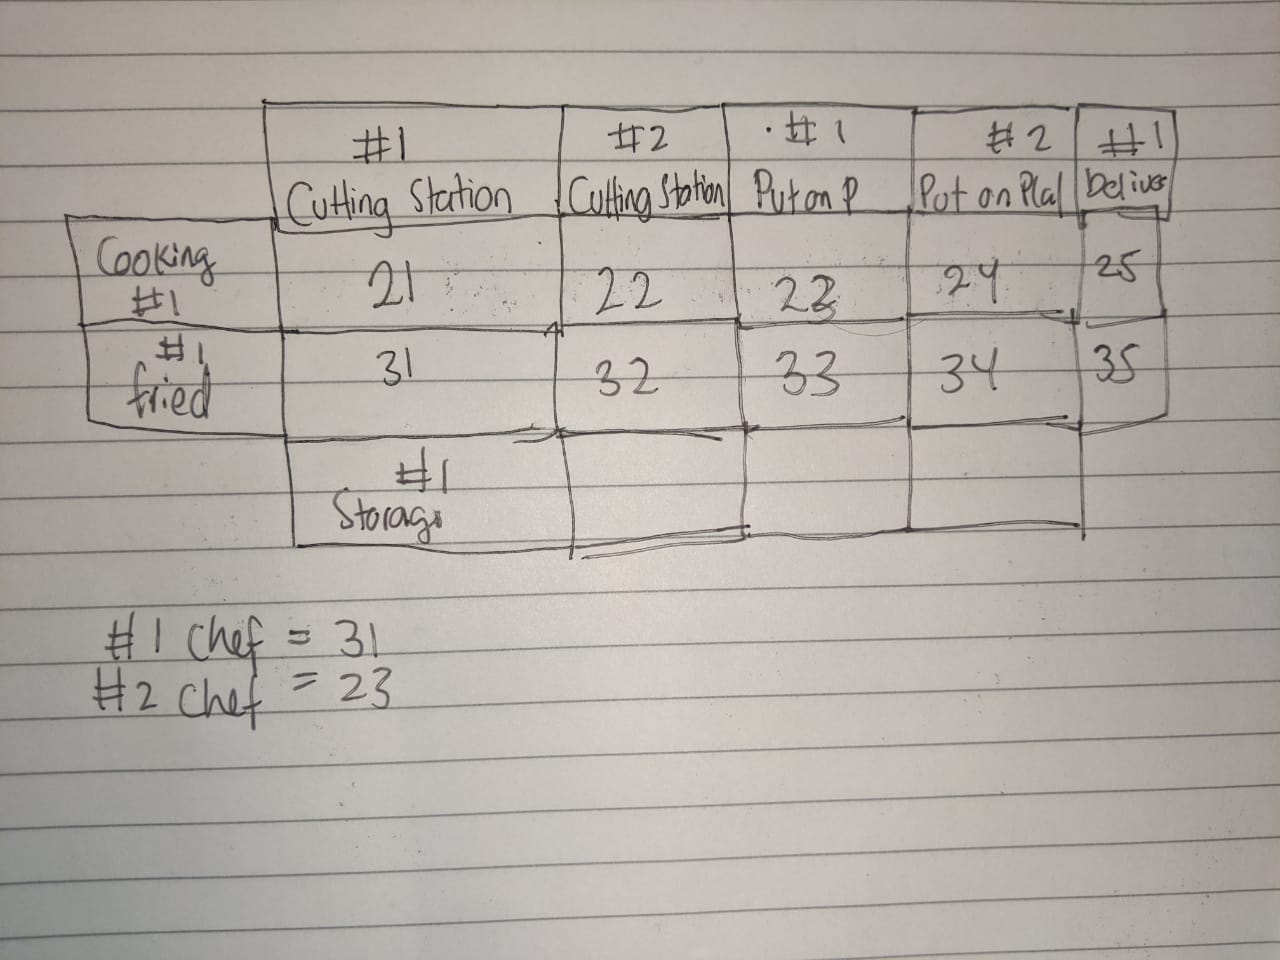 #1 #2 #1 #2 #1
Cutting Station Cutting Station Put on P Put on Plat Deliver
Cooking
#1
21 22 23 24 25
#1
fried
31 32 33 34 35
#1
Storage
#1 Chef = 31
#2 Chef = 23